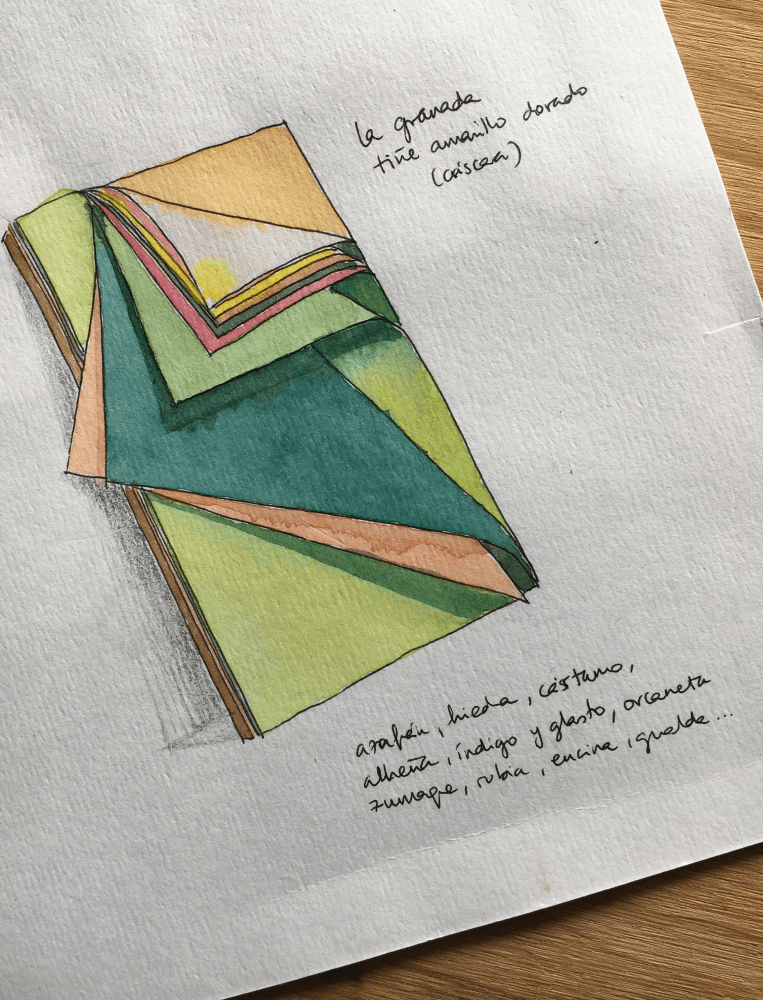 la granada
tiñe amarillo dorado
(cáscara)
azafrán, hiedra, castaño,
alheña, índigo y glasto, orcaneta
zumaque, rubia, encina, gualda...